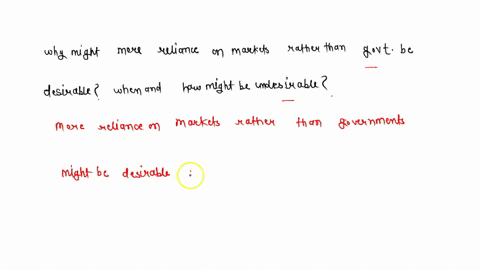 why might more reliance on markets rather than govt. be
desirable? when and how might be undesirable?
More reliance on markets rather than governments
might be desirable :